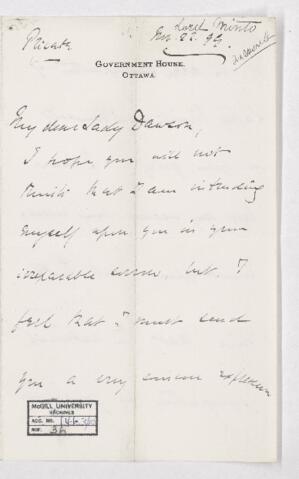 Lord Minto
Private
Nov. 22. 99.
Answered
GOVERNMENT HOUSE.
OTTAWA.
My dear Lady Dawson,
I hope you will not
think that I am intruding
myself upon you in your
irreparable sorrow but I
feel that I must send
you a very sincere expression
McGILL UNIVERSITY
ARCHIVES
ACC. NO.
REF. 36